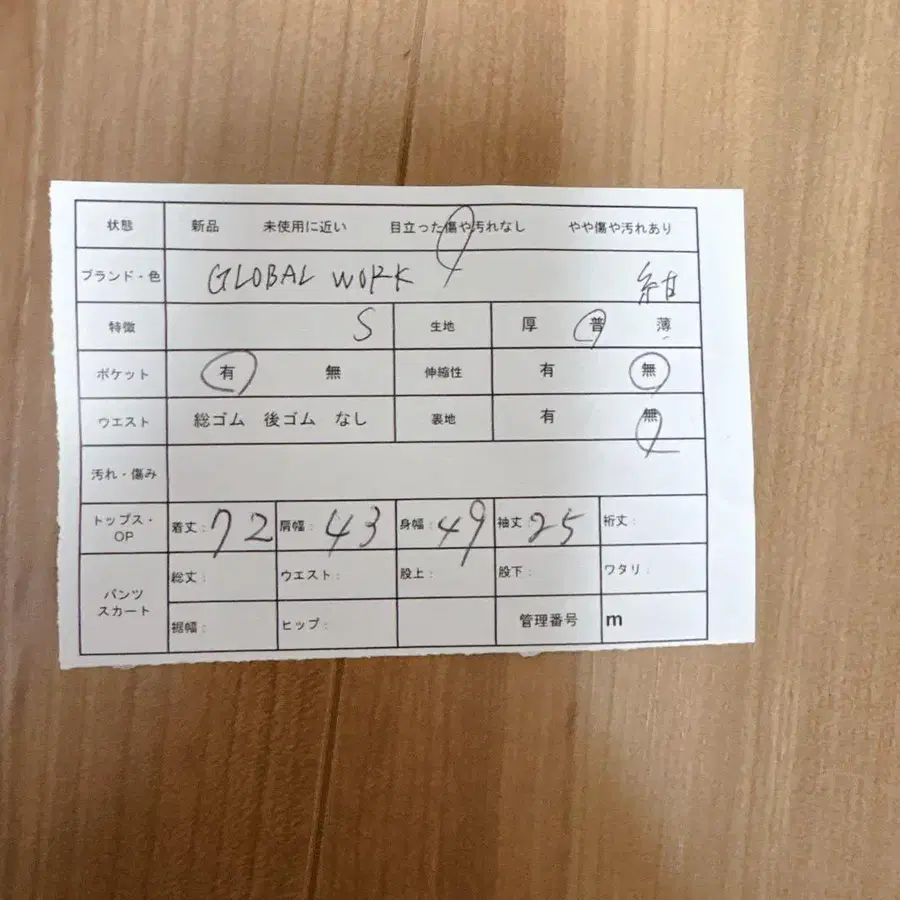 状態 新品 未使用に近い 目立った傷や汚れなし やや傷や汚れあり
ブランド・色 GLOBAL WORK 紺
特徴 S 生地 厚 普 薄
ポケット 有 無 伸縮性 有 無
ウエスト 総ゴム 後ゴム なし 裏地 有 無
汚れ・傷み
トップス・OP 着丈: 72 肩幅: 43 身幅: 49 袖丈: 25 裄丈:
パンツ スカート 総丈: ウエスト: 股上: 股下: ワタリ:
裾幅: ヒップ: 管理番号 m